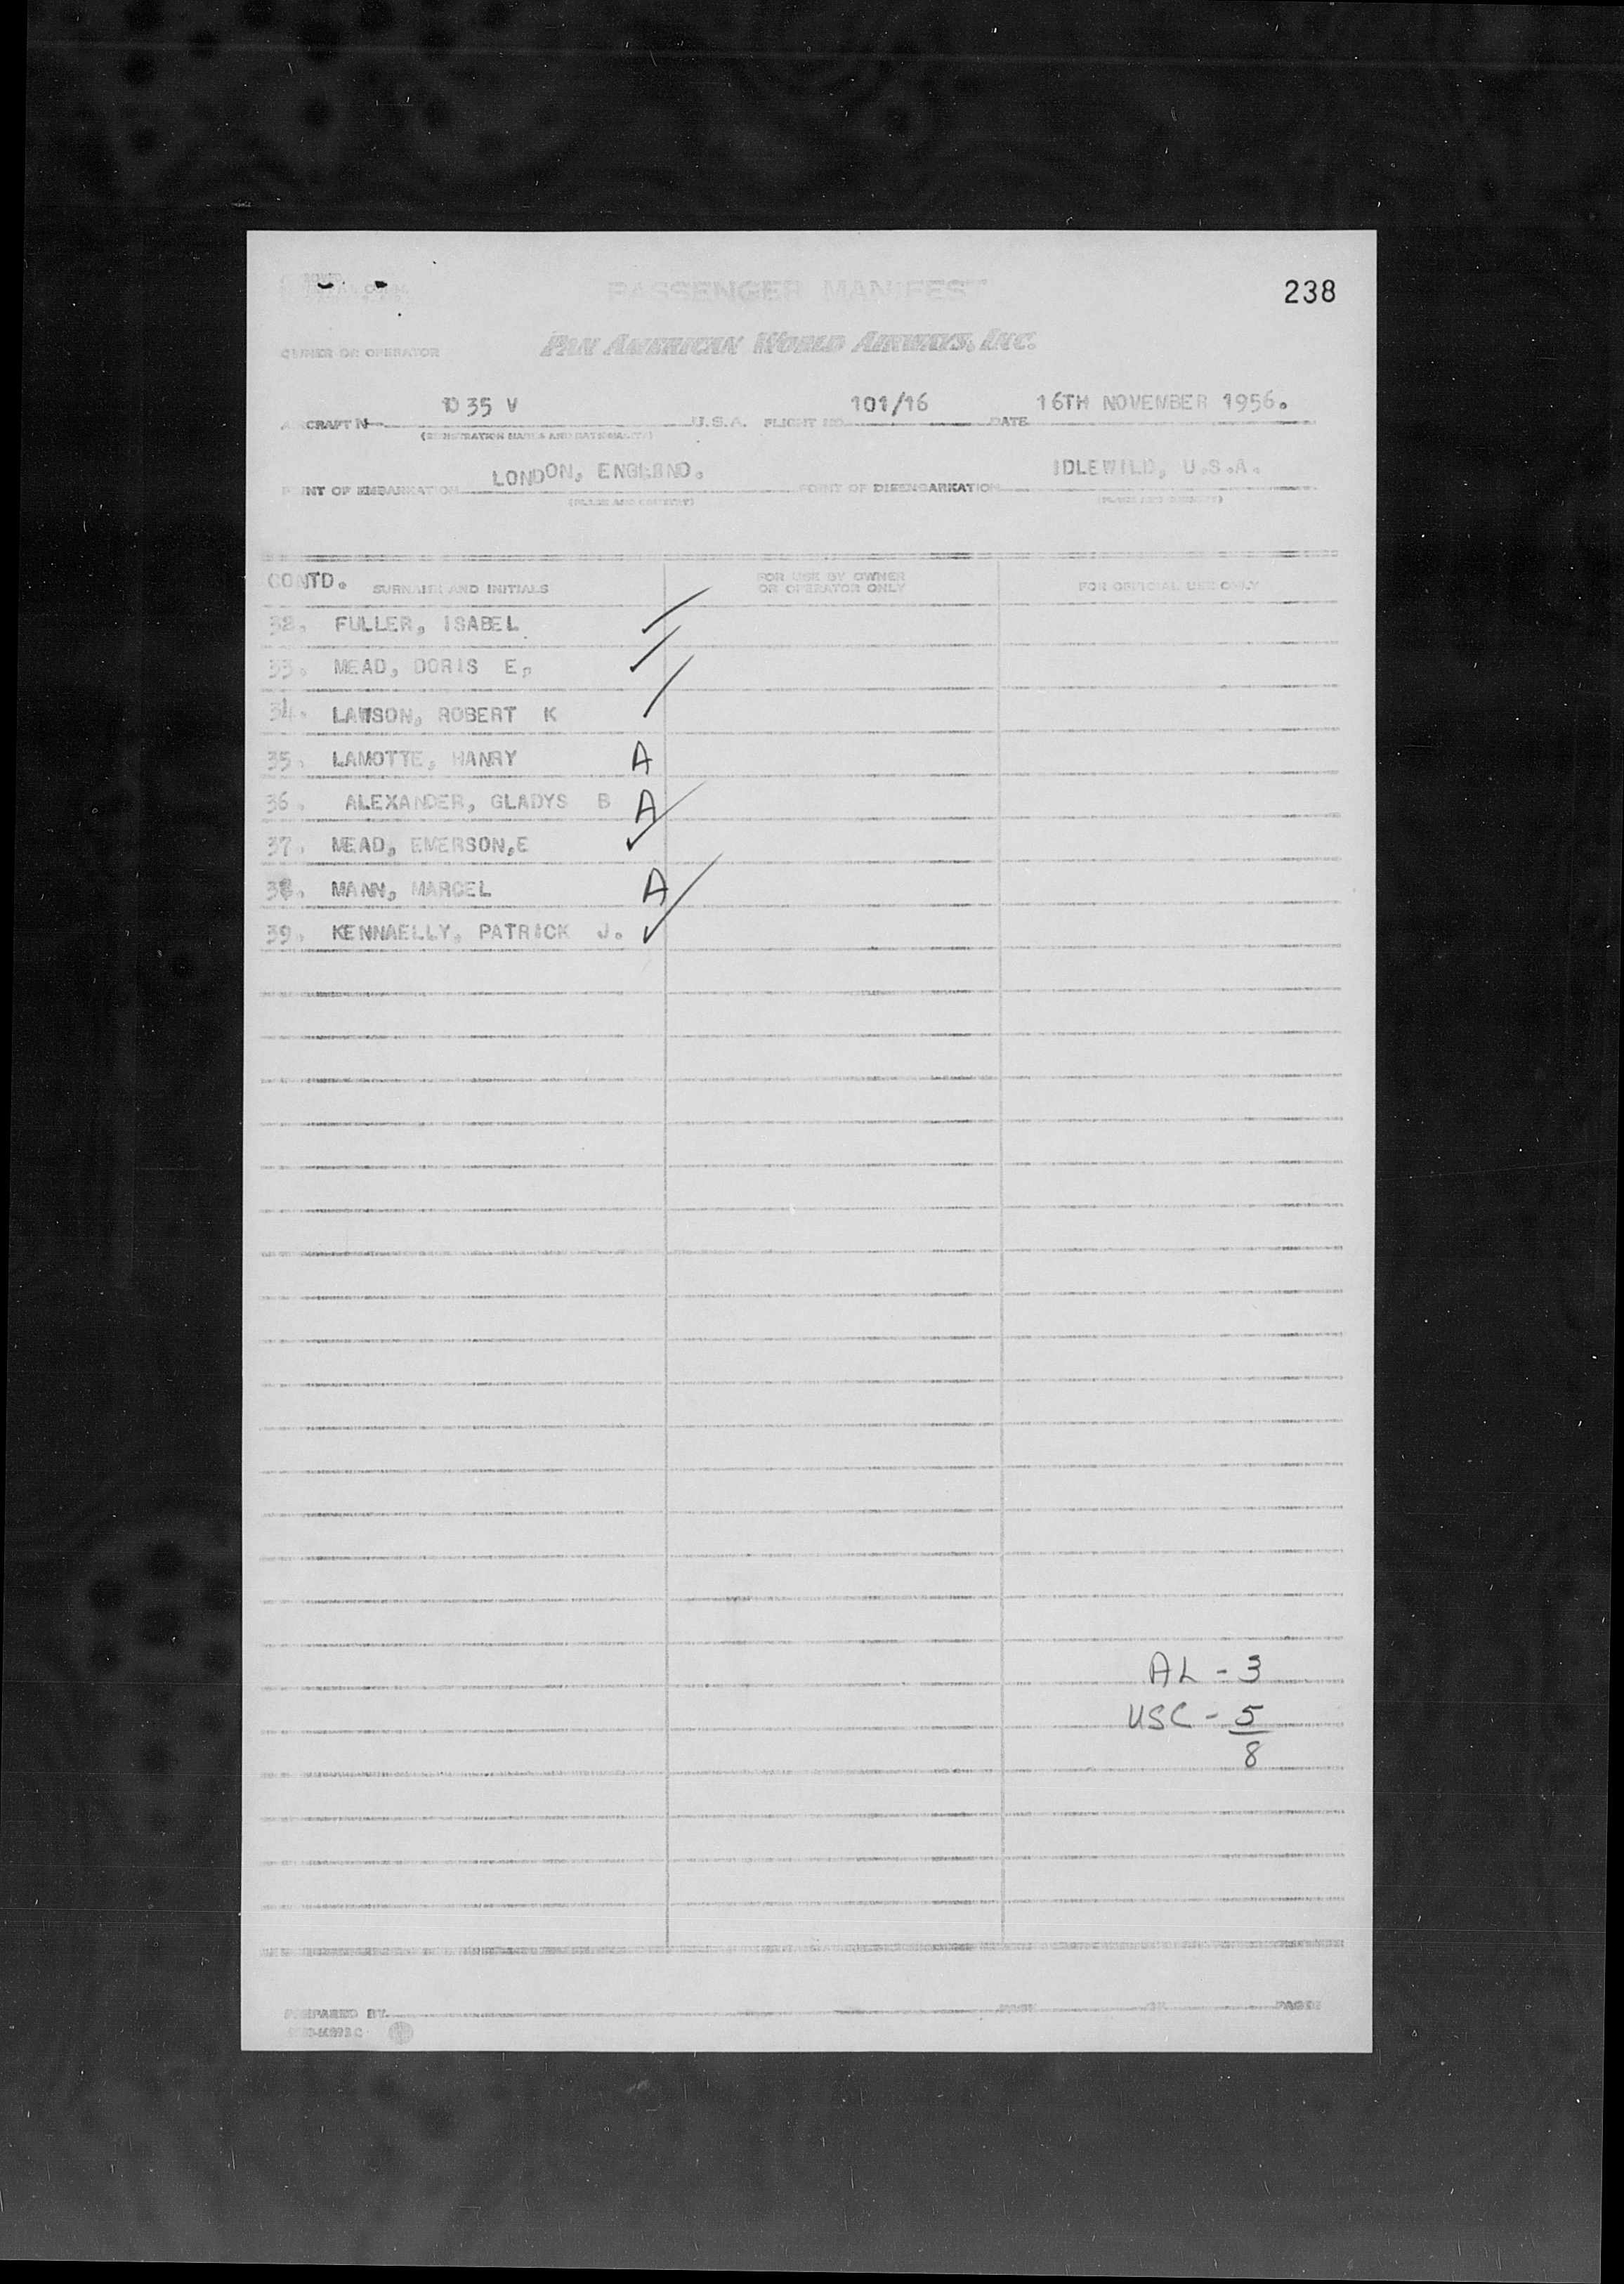 238
PASSENGER MANIFEST
OWNER OR OPERATOR PAN AMERICAN WORLD AIRWAYS, INC.
AIRCRAFT No 1035 V U.S.A. FLIGHT NO. 101/16 DATE 16TH NOVEMBER 1956.
(REGISTRATION MARKS AND NATIONALITY)
POINT OF EMBARKATION LONDON, ENGLAND. POINT OF DISEMBARKATION IDLEWILD, U.S.A.
(PLACE AND COUNTRY) (PLACE AND COUNTRY)
CONTD. SURNAME AND INITIALS FOR USE BY OWNER OR OPERATOR ONLY FOR OFFICIAL USE ONLY
32. FULLER, ISABEL
33. MEAD, DORIS E,
34. LAWSON, ROBERT K
35. LAMOTTE, HANRY A
36. ALEXANDER, GLADYS B A
37. MEAD, EMERSON,E
38. MANN, MARCEL A
39. KENNAELLY, PATRICK J.
AL - 3
USC - 5
8
PREPARED BY PAGE OF PAGES